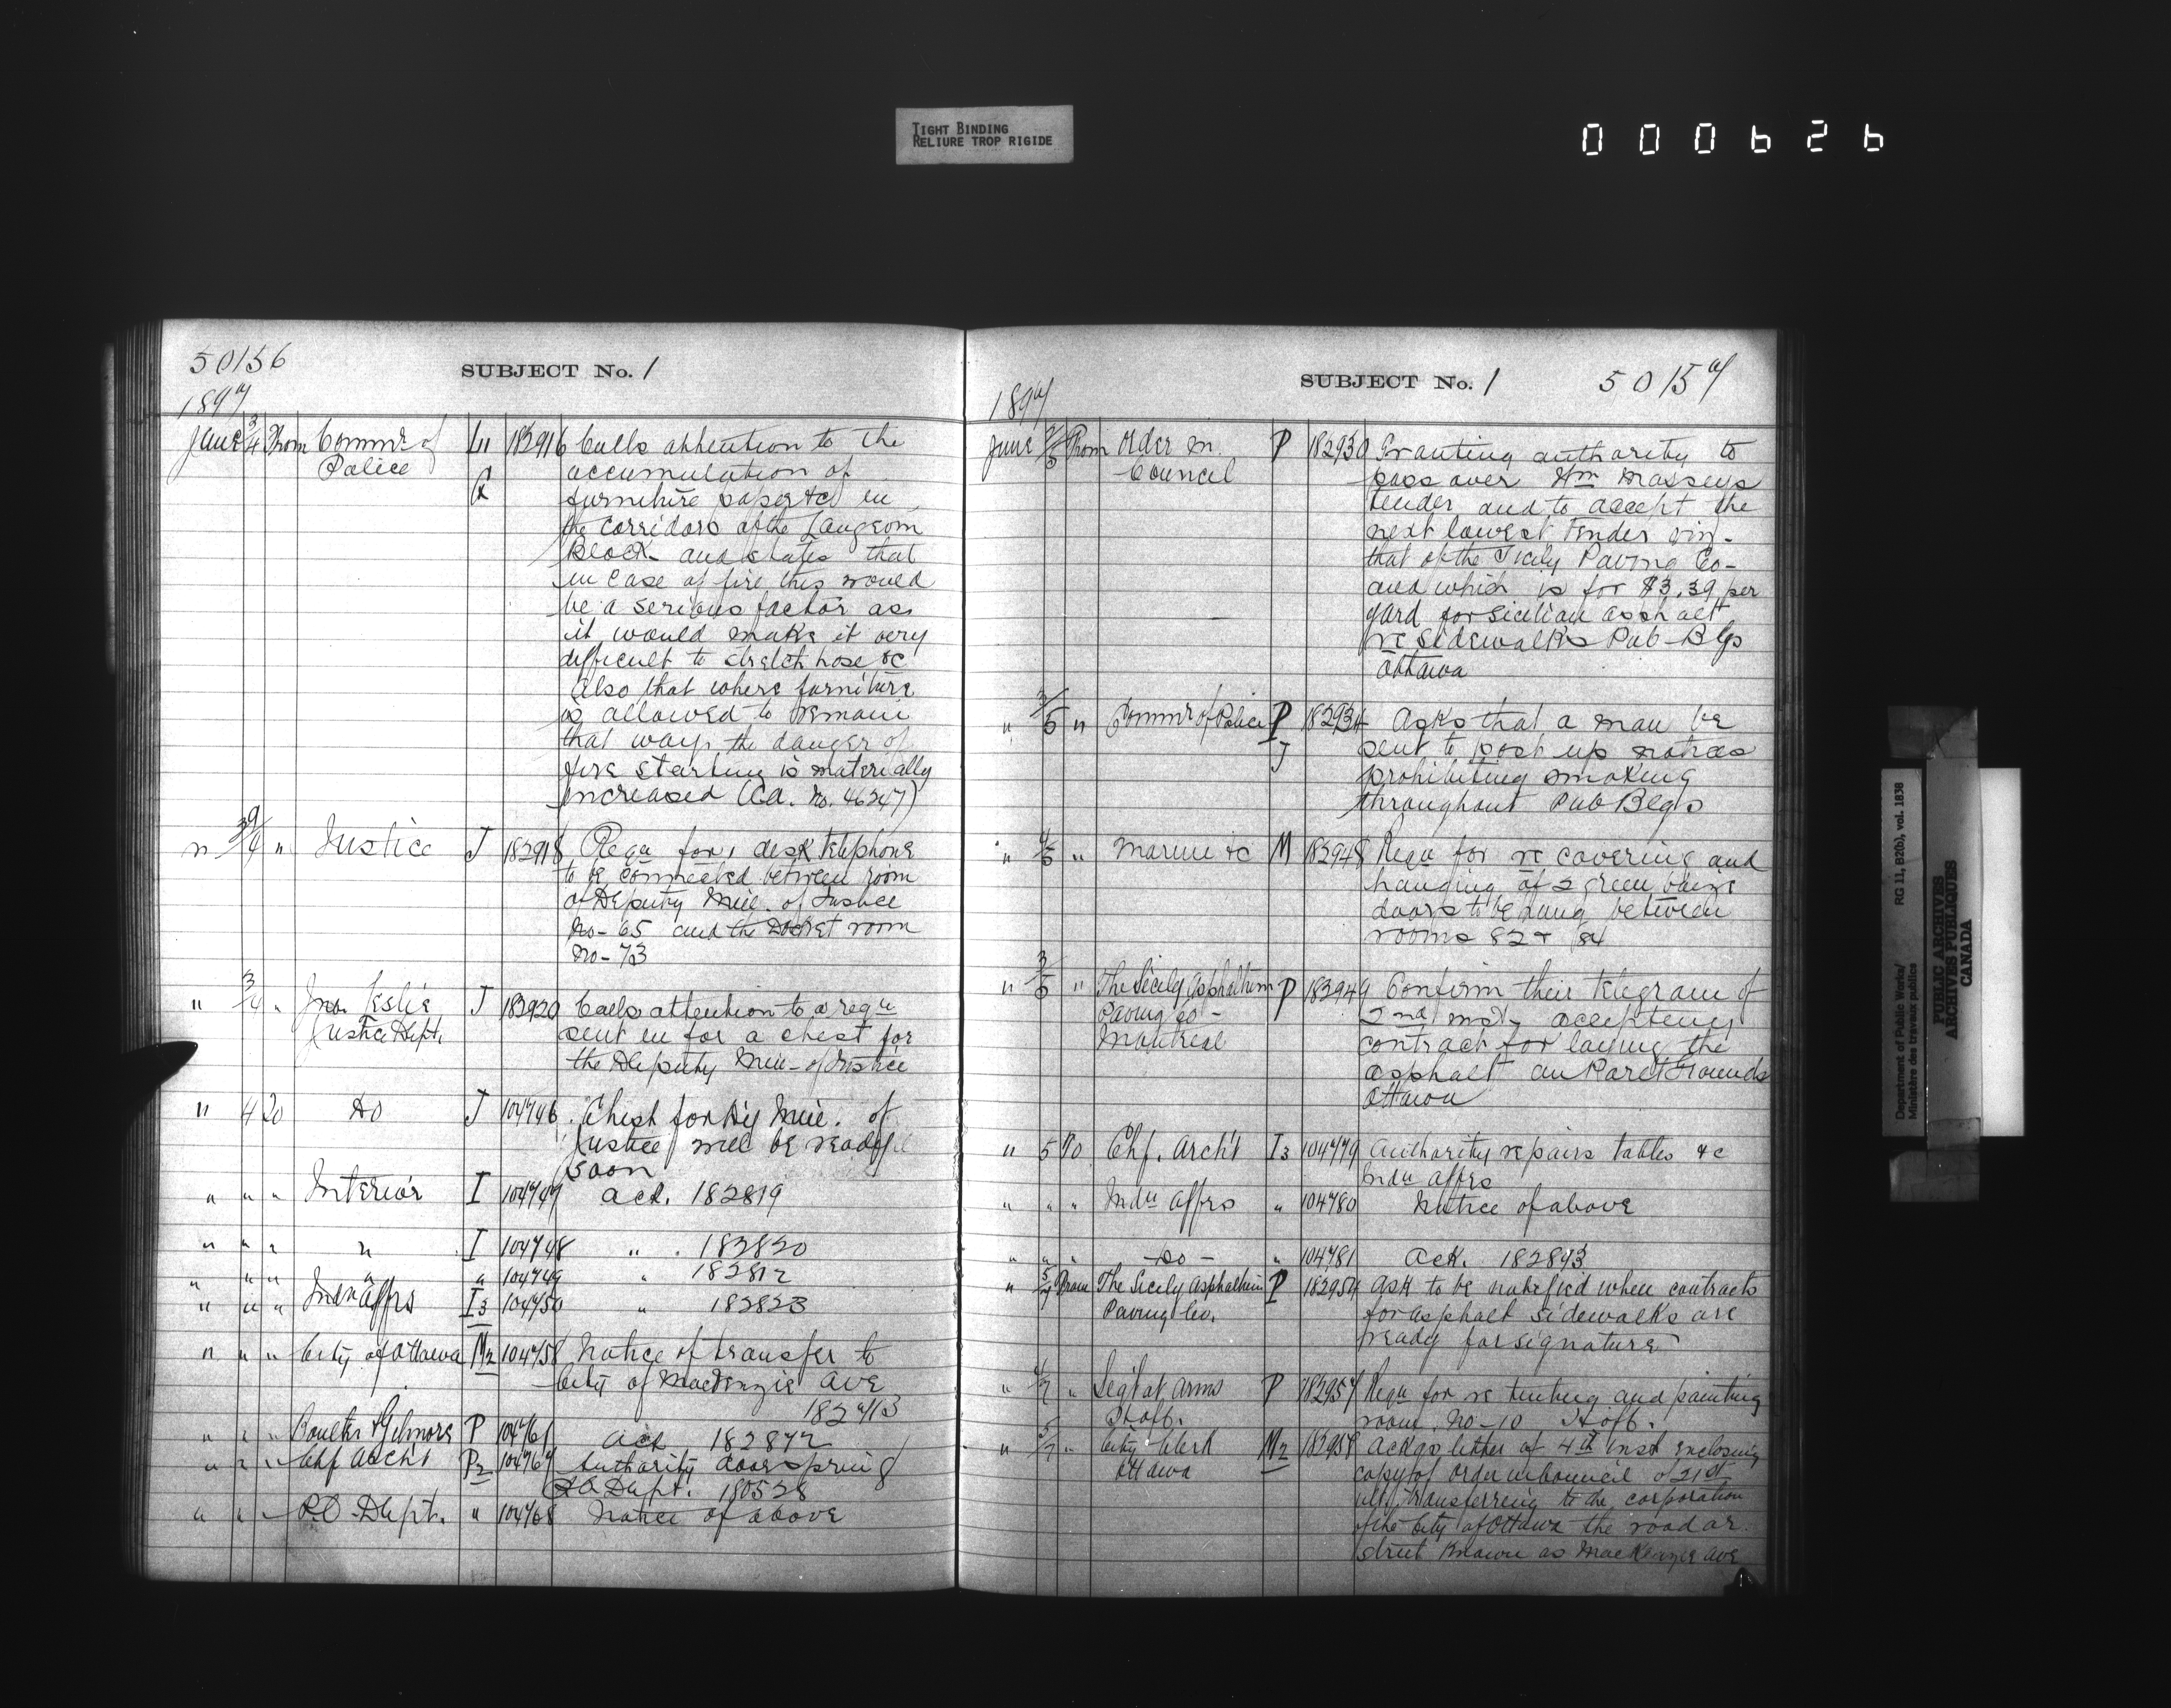 TIGHT BINDING
RELIURE TROP RIGIDE
000626
50156
SUBJECT No. 1
1897
June 3/4 From Commr of Police 182916 Calls attention to the
accumulation of
furniture paper &c in
the corridors of the Langevin
Block and states that
in case of fire this would
be a serious factor as
it would make it very
difficult to stretch hose &c
Also that where furniture
is allowed to remain
that way, the danger of
fire starting is materially
increased (Ca. No. 46247)
" " Justice J 182918 Requ for 1 desk telephone
to be connected between room
of Deputy Min. of Justice
No- 65 and the Docket room
No- 73
" 3/4 " Jno. Leslie Justice Dept. J 182920 Calls attention to a requ
sent in for a chest for
the Deputy Min- of Justice
" 4 To Do J 104746 Chest for Dy Min. of
Justice will be ready
soon
" " " Interior I 104747 Ack. 182819
" " " " I 104748 " 182820
" " " " " 104749 " 182812
" " " Indn Affrs I3 104750 " 182823
" " " City of Ottawa M2 104758 Notice of transfer to
City of MacKenzie Ave
182713
" " " Boulter & Gilmore P 104761 Ack 182872
" " " Chf Archt P2 104767 Authority door spring
P.O. Dept. 180528
" " " P.O. Dept. " 104768 Notice of above
SUBJECT No. 1
50157
1897
June From Order in Council P 182930 Granting authority to
pass over Wm Masseys
tender and to accept the
next lowest tender viz-
that of the Sicily Paving Co-
and which is for $3.39 per
yard for Sicilian asphalt
re sidewalks Pub-Blgs
Ottawa
" 3/5 " Commr of Police P J 182934 Asks that a man be
sent to post up notices
prohibiting smoking
throughout Pub Blgs
" 4/5 " Marine &c M 182948 Requ for re covering and
hanging of 2 green baize
doors to be hung between
rooms 82 & 84
" 3/5 " The Sicily Asphaltum Paving Co- Montreal P 182949 Confirm their telegram of
2nd inst, accepting
contract for laying the
asphalt on Parlt Grounds
Ottawa
" 5 To Chf. Archt I3 104779 Authority repairs tables &c
Indn Affrs
" " " Indn Affrs " 104780 Notice of above
" " " -Do- " 104781 Ack. 182893
" 5/7 From The Sicily Asphaltum Paving Co. P 182954 Ask to be notified when contracts
for asphalt sidewalks are
ready for signature
" 4/7 " Segt at Arms H of C. P 182957 Requ for re tinting and painting
room No-10 H of C.
" 5/7 " City Clerk Ottawa M2 182958 Ackgs letter of 4th inst enclosing
copy of Order in Council of 21st
ult, transferring to the corporation
of the City of Ottawa the road or
street known as MacKenzie Ave
Department of Public Works/ RG 11, B2(b), vol. 1838
Ministère des travaux publics
PUBLIC ARCHIVES
ARCHIVES PUBLIQUES
CANADA